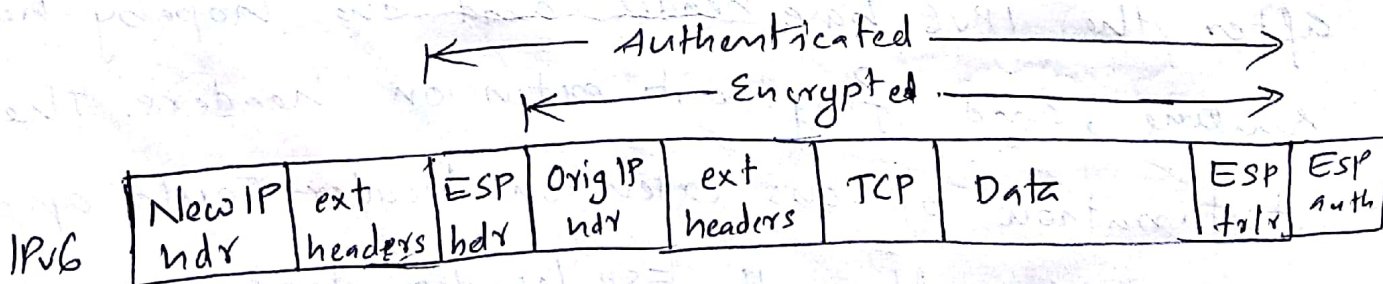 Authenticated
Encrypted
IPv6
New IP hdr
ext headers
ESP hdr
Orig IP hdr
ext headers
TCP
Data
ESP trlr
ESP auth